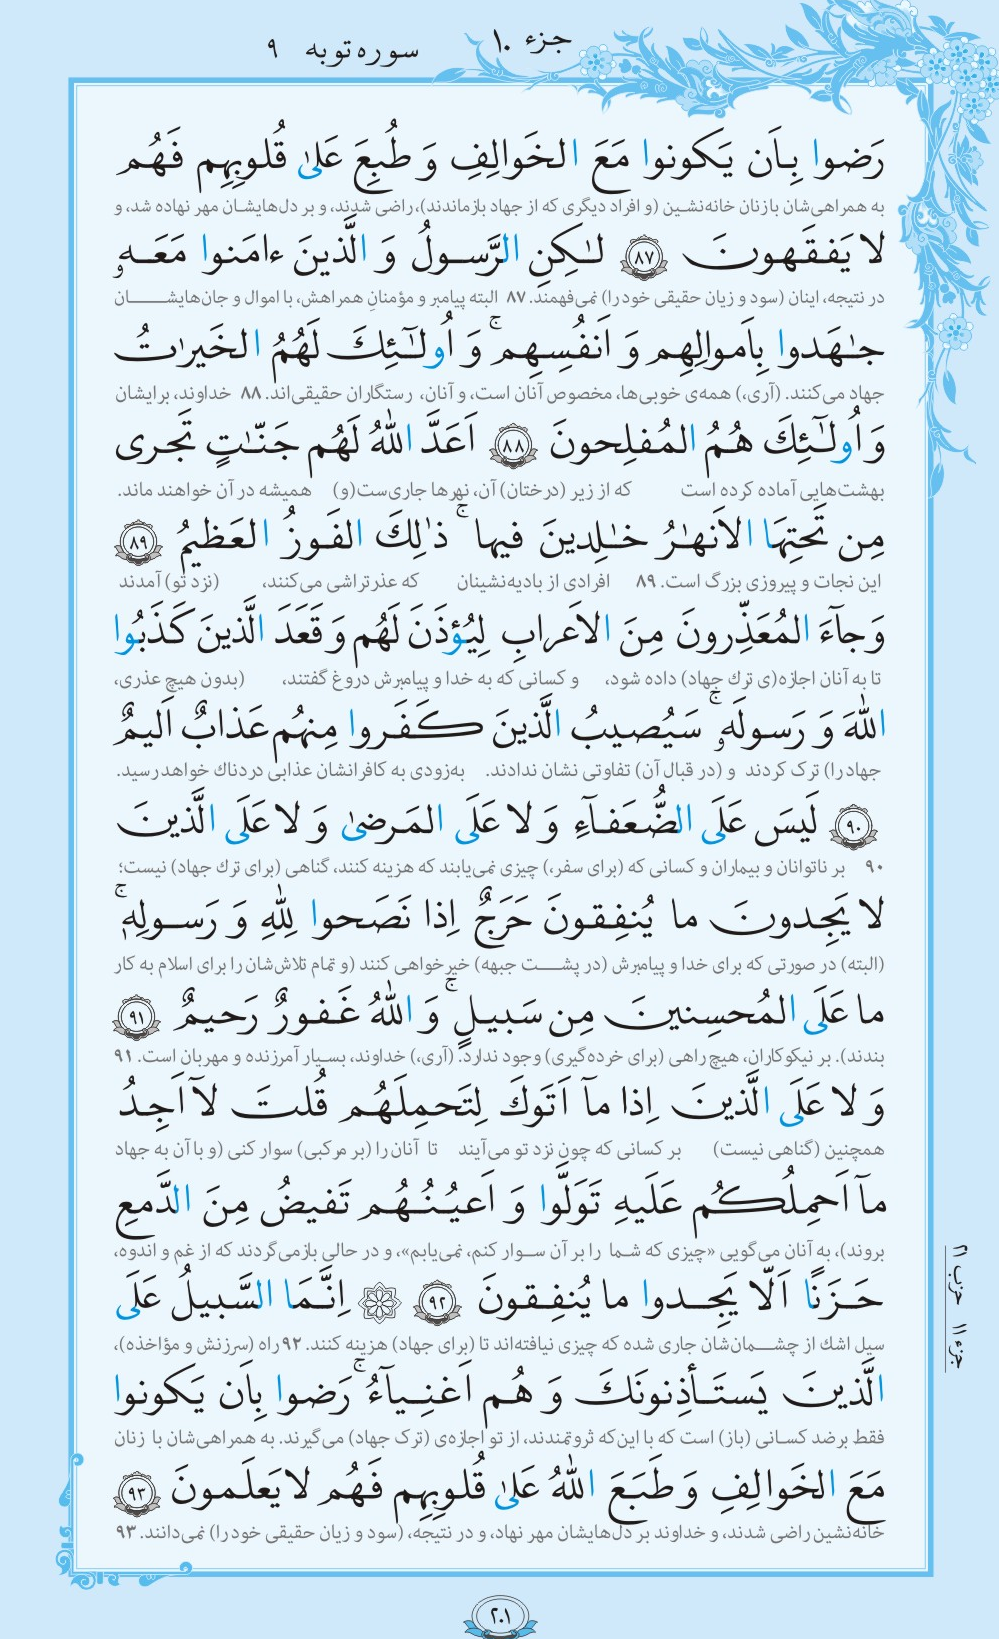 جزء ۱۰
سوره توبه ۹
رَضوا بِاَن يَكونوا مَعَ الخَوالِفِ وَ طُبِعَ عَلىٰ قُلوبِهِم فَهُم
به همراهی‌شان با زنان خانه‌نشین (و افراد دیگری که از جهاد بازماندند)، راضی شدند، و بر دل‌هایشان مهر نهاده شد، و
لا يَفقَهونَ ۸۷ لـٰكِنِ الرَّسولُ وَ الَّذينَ ءامَنوا مَعَهۥ
در نتیجه، اینان (سود و زیان حقیقی خود را) نمی‌فهمند. ۸۷ البته پیامبر و مؤمنانِ همراهش، با اموال و جان‌هایشان
جـٰهَدوا بِاَموالِهِم وَ اَنفُسِهِم ۚ وَ اُولـٰئِكَ لَهُمُ الخَيرٰتُ
جهاد می‌کنند. (آری،) همه‌ی خوبی‌ها، مخصوص آنان است، و آنان، رستگاران حقیقی‌اند. ۸۸ خداوند، برایشان
وَ اُولـٰئِكَ هُمُ المُفلِحونَ ۸۸ اَعَدَّ اللّٰهُ لَهُم جَنّـٰتٍ تَجرى
بهشت‌هایی آماده کرده است که از زیر (درختان) آن، نهرها جاری‌ست (و) همیشه در آن خواهند ماند.
مِن تَحتِهَا الاَنهـٰرُ خـٰلِدينَ فيها ۚ ذٰلِكَ الفَوزُ العَظيمُ ۸۹
این نجات و پیروزی بزرگ است. ۸۹ افرادی از بادیه‌نشینان که عذرتراشی می‌کنند، (نزد تو) آمدند
وَ جآءَ المُعَذِّرونَ مِنَ الاَعرابِ لِيُؤذَنَ لَهُم وَ قَعَدَ الَّذينَ كَذَبُوا
تا به آنان اجازه(ی ترك جهاد) داده شود، و کسانی که به خدا و پیامبرش دروغ گفتند، (بدون هیچ عذری،
اللّٰهَ وَ رَسولَهۥ ۚ سَيُصيبُ الَّذينَ كَفَروا مِنهُم عَذابٌ اَليمٌ
جهاد را) ترک کردند و (در قبال آن) تفاوتی نشان ندادند. به‌زودی به کافرانشان عذابی دردناك خواهد رسید.
۹۰ لَيسَ عَلَى الضُّعَفآءِ وَ لا عَلَى المَرضىٰ وَ لا عَلَى الَّذينَ
۹۰ بر ناتوانان و بیماران و کسانی که (برای سفر،) چیزی نمی‌یابند که هزینه کنند، گناهی (برای ترك جهاد) نیست؛
لا يَجِدونَ ما يُنفِقونَ حَرَجٌ اِذا نَصَحوا لِلّٰهِ وَ رَسولِهٖ ۚ
(البته) در صورتی که برای خدا و پیامبرش (در پشت جبهه) خیرخواهی کنند (و تمام تلاش‌شان را برای اسلام به کار
ما عَلَى المُحسِنينَ مِن سَبيلٍ ۚ وَ اللّٰهُ غَفورٌ رَحيمٌ ۹۱
بندند). بر نیکوکاران، هیچ راهی (برای خرده‌گیری) وجود ندارد. (آری،) خداوند، بسیار آمرزنده و مهربان است. ۹۱
وَ لا عَلَى الَّذينَ اِذا مآ اَتَوكَ لِتَحمِلَهُم قُلتَ لآ اَجِدُ
همچنین (گناهی نیست) بر کسانی که چون نزد تو می‌آیند تا آنان را (بر مرکبی) سوار کنی (و با آن به جهاد
مآ اَحمِلُكُم عَلَيهِ تَوَلَّوا وَ اَعيُنُهُم تَفيضُ مِنَ الدَّمعِ
بروند)، به آنان می‌گویی «چیزی که شما را بر آن سوار کنم، نمی‌یابم»، و در حالی بازمی‌گردند که از غم و اندوه،
حَزَنًا اَلّا يَجِدوا ما يُنفِقونَ ۹۲ ۞ اِنَّمَا السَّبيلُ عَلَى
سیل اشك از چشمان‌شان جاری شده که چیزی نیافته‌اند تا (برای جهاد) هزینه کنند. ۹۲ راه (سرزنش و مؤاخذه)،
الَّذينَ يَستَأذِنونَكَ وَ هُم اَغنِيآءُ ۚ رَضوا بِاَن يَكونوا
فقط بر ضد کسانی (باز) است که با این‌که ثروتمندند، از تو اجازه‌ی (ترک جهاد) می‌گیرند. به همراهی‌شان با زنان
مَعَ الخَوالِفِ وَ طَبَعَ اللّٰهُ عَلىٰ قُلوبِهِم فَهُم لا يَعلَمونَ ۹۳
خانه‌نشین راضی شدند، و خداوند بر دل‌هایشان مهر نهاد، و در نتیجه، (سود و زیان حقیقی خود را) نمی‌دانند. ۹۳
حزب ۲۱
جزء ۱۱
۲۰۱